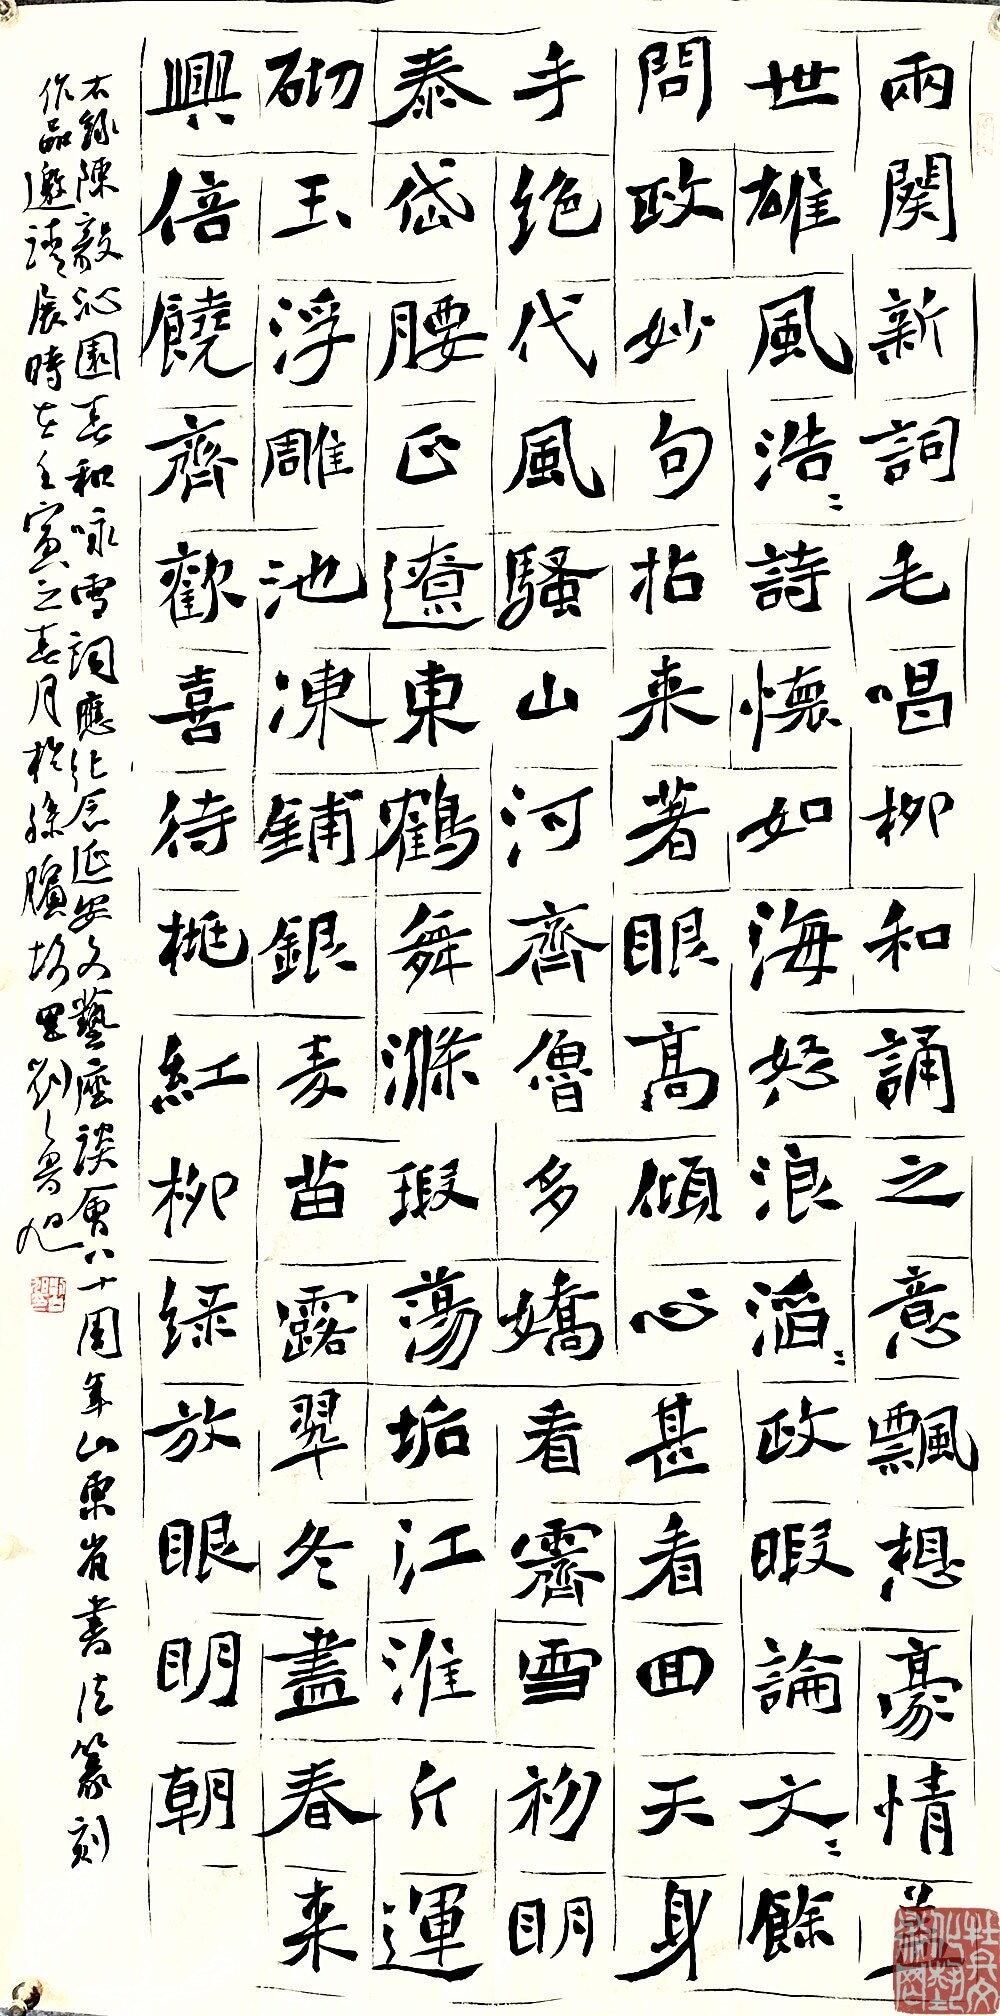 兩闋新詞毛唱柳和誦之意飄想豪情蓋
世雄風浩〻詩懷如海怒浪滔〻政暇論文〻餘
問政妙句拈来著眼高傾心甚看回天身
手绝代風騷山河齊魯多嬌看霽雪初明
泰岱腰正遼東鶴舞滌瑕蕩垢江淮斤運
砌玉浮雕池凍鋪銀麦苗露翠冬盡春来
興倍饒齊歡喜待桃紅柳绿放眼明朝
右録陳毅沁園春和咏雪詞應纪念延安文藝座談會八十周年山東省書法篆刻
作品邀請展時在壬寅之春月於孫臏故里劉魯旭